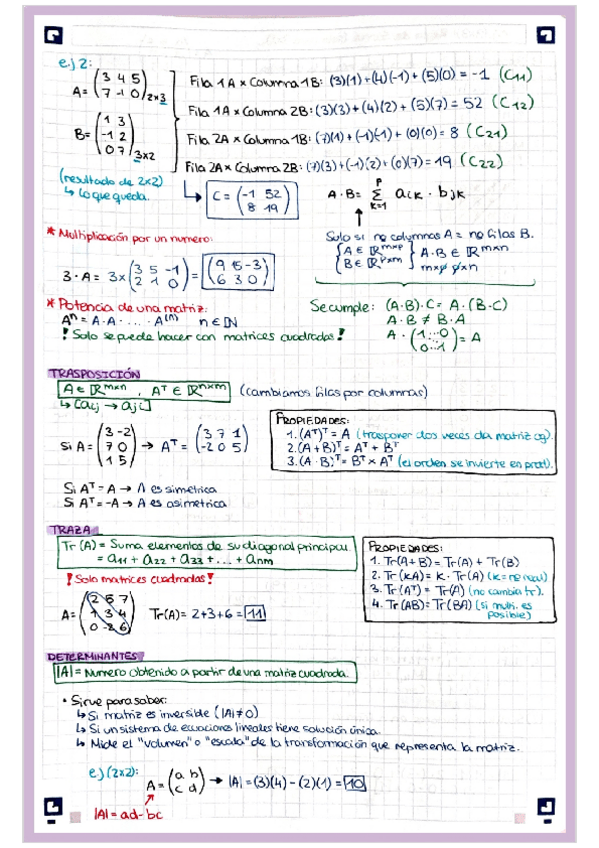 e.j 2:
A = (3 4 5
7 -1 0) 2x3
B = (1 3
-1 2
0 7) 3x2
Fila 1A x Columna 1B: (3)(1)+(4)(-1)+(5)(0) = -1 (C11)
Fila 1A x Columna 2B: (3)(3)+(4)(2)+(5)(7) = 52 (C12)
Fila 2A x Columna 1B: (7)(1)+(-1)(-1)+(0)(0) = 8 (C21)
Fila 2A x Columna 2B: (7)(3)+(-1)(2)+(0)(7) = 19 (C22)
(resultado de 2x2)
↳ Lo que queda.
C = (-1 52
8 19)
A·B = Σ aik · bjk
p
k=1
Solo si nº columnas A = nº filas B.
{A ∈ ℝmxp
B ∈ ℝpxm} A·B ∈ ℝmxn
mxp pxn
* Multiplicación por un numero:
3·A = 3x(3 5 -1
2 1 0) = (9 15 -3
6 3 0)
* Potencia de una matriz:
Aⁿ = A·A· ... ·A⁽ⁿ⁾ n ∈ ℕ
! Solo se puede hacer con matrices cuadradas !
Se cumple: (A·B)·C = A·(B·C)
A·B ≠ B·A
A·(1...0
0...1) = A
TRASPOSICIÓN
A ∈ ℝmxn , Aᵀ ∈ ℝnxm (cambiamos filas por columnas)
↳ [aij → aji]
Si A = (3 -2
7 0
1 5) → Aᵀ = (3 7 1
-2 0 5)
PROPIEDADES:
1. (Aᵀ)ᵀ = A (trasponer dos veces da matriz og).
2. (A+B)ᵀ = Aᵀ + Bᵀ
3. (A·B)ᵀ = Bᵀ x Aᵀ (el orden se invierte en prod).
Si Aᵀ = A → A es simetrica
Si Aᵀ = -A → A es asimetrica
TRAZA
Tr(A) = Suma elementos de su diagonal principal.
= a11 + a22 + a33 + ... + anm
! Solo matrices cuadradas !
A = (2 5 7
1 3 4
0 -2 6) Tr(A) = 2+3+6 = 11
PROPIEDADES:
1. Tr(A+B) = Tr(A) + Tr(B)
2. Tr(kA) = k·Tr(A) (k = nº real)
3. Tr(Aᵀ) = Tr(A) (no cambia tr).
4. Tr(AB) = Tr(BA) (si multi. es
posible)
DETERMINANTES
|A| = Numero obtenido a partir de una matriz cuadrada.
• Sirve para saber:
↳ Si matriz es inversible (|A| ≠ 0)
↳ Si un sistema de ecuaciones lineales tiene solución única.
↳ Mide el "volumen" o "escala" de la transformación que representa la matriz.
e.j (2x2):
A = (a b
c d) → |A| = (3)(4) - (2)(1) = 10
|A| = ad - bc